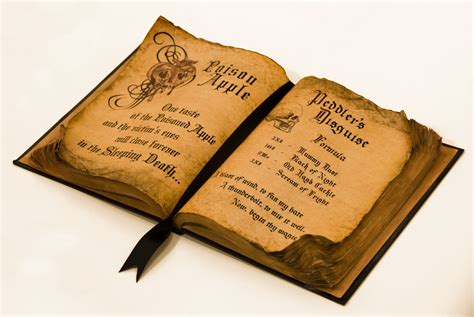 Poison
Apple
One taste
of the Poisoned Apple
and the victim's eyes
will close forever
in the Sleeping Death...
Peddler's
Disguise
Formula
Mummy Dust
Black of Night
Old Hag's Cackle
Scream of Fright
A blast of wind, to fan my hate
A thunderbolt, to mix it well
Now, begin thy magic